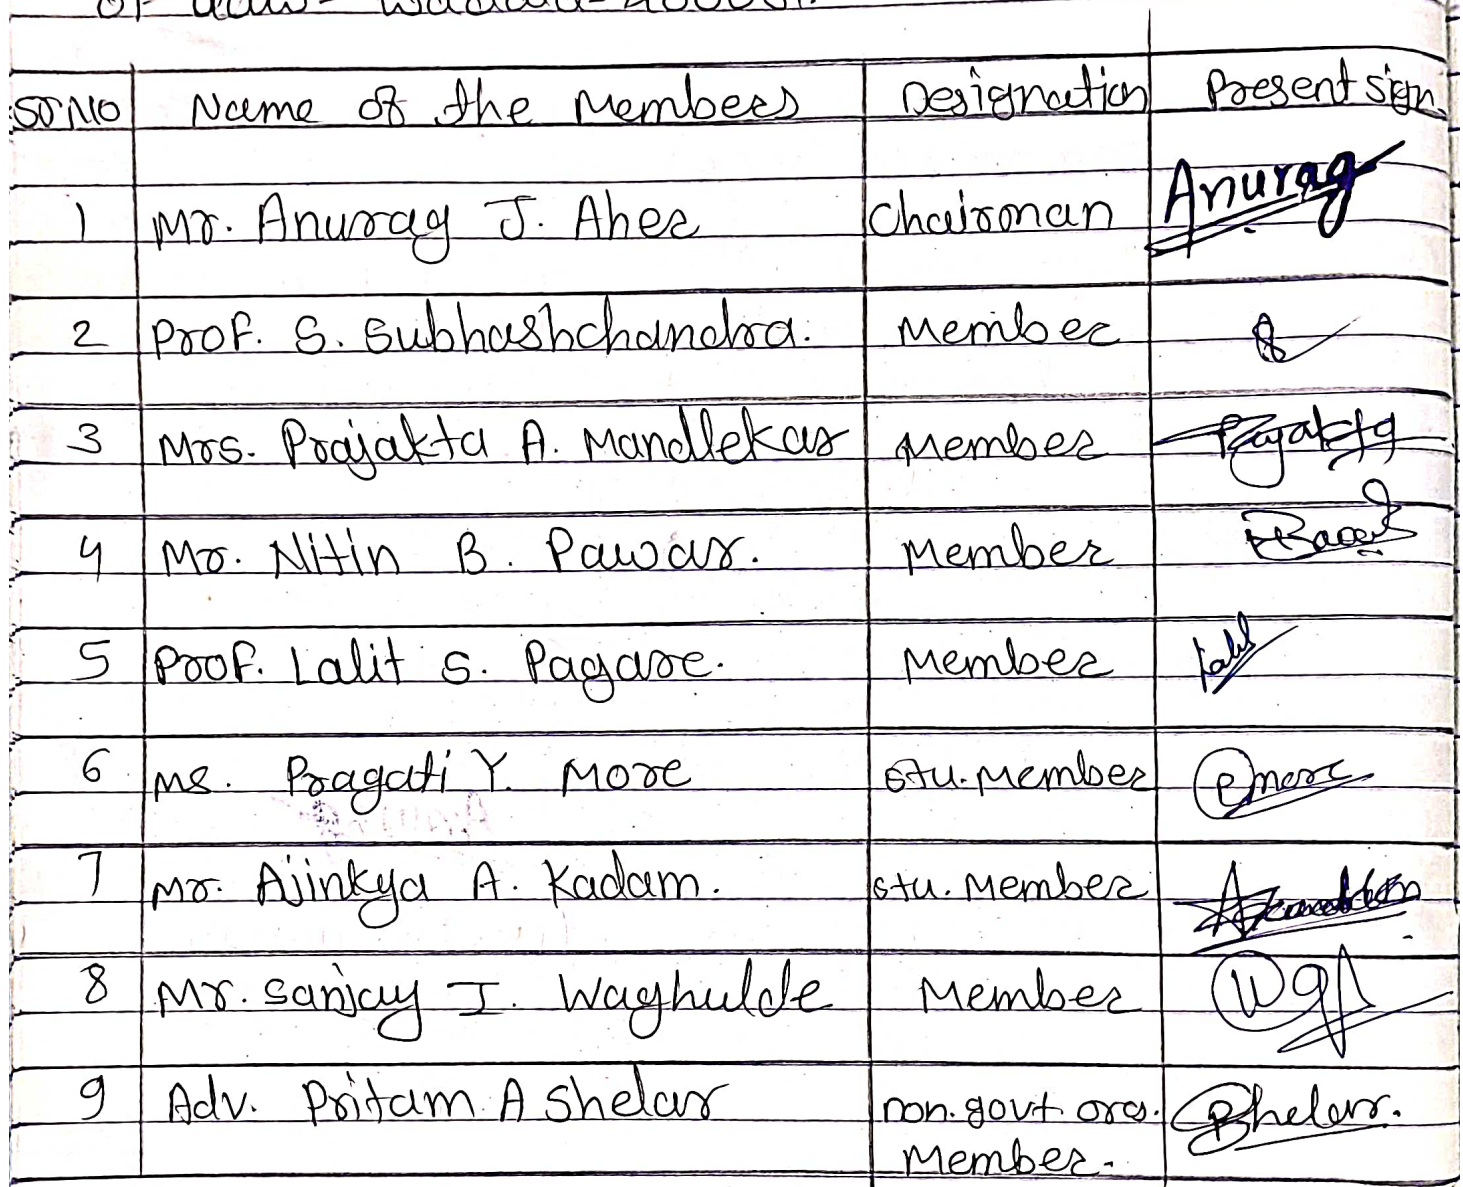 Sr No Name of the Members Designation Present sign
1 Mr. Anurag J. Aher Chairman Anurag
2 Prof. S. Subhashchandra. Member
3 Mrs. Prajakta A. Mandlekar Member Prajakta
4 Mr. Nitin B. Pawar. Member
5 Prof. Lalit S. Pagare. Member Lalit
6 Ms. Pragati Y. More stu. Member Pmore
7 Mr. Ajinkya A. Kadam. stu. Member
8 Mr. Sanjay I. Waghulde Member
9 Adv. Pritam A Shelar non. govt. org. PShelar.
Member.